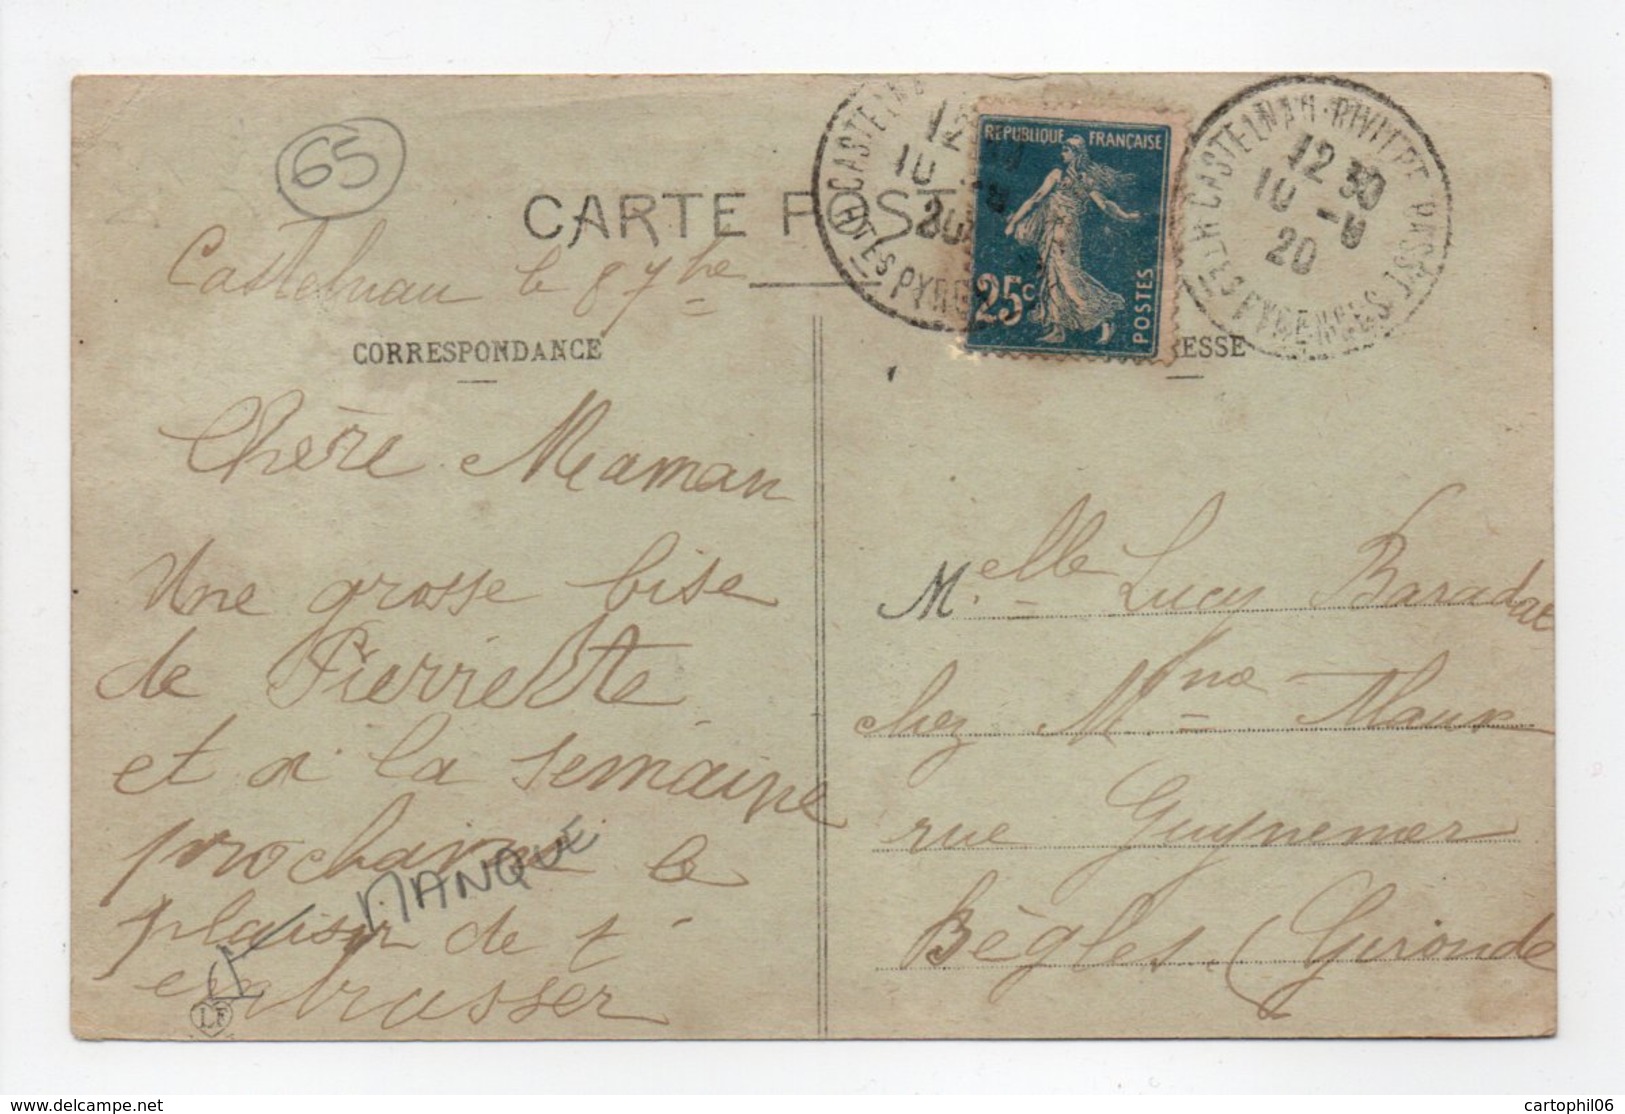 65
CARTE POST
Castelnau le 8 7bre
CORRESPONDANCE
Chère Maman
Une grosse bise
de Pierrette
et à la semaine
prochaine le
plaisir de t'
embrasser
MANQUE
LF
CASTELNA
12
10 -9
20
HTES PYR
REPUBLIQUE FRANÇAISE
25c
POSTES
CASTELNAU-RIVIERE-BASSE
12 30
10 -9
20
HTES PYRENEES
RESSE
Melle Lucy Baradat
chez Mme Maux
rue Guynemer
Bègles (Gironde
www.delcampe.net
cartophil06